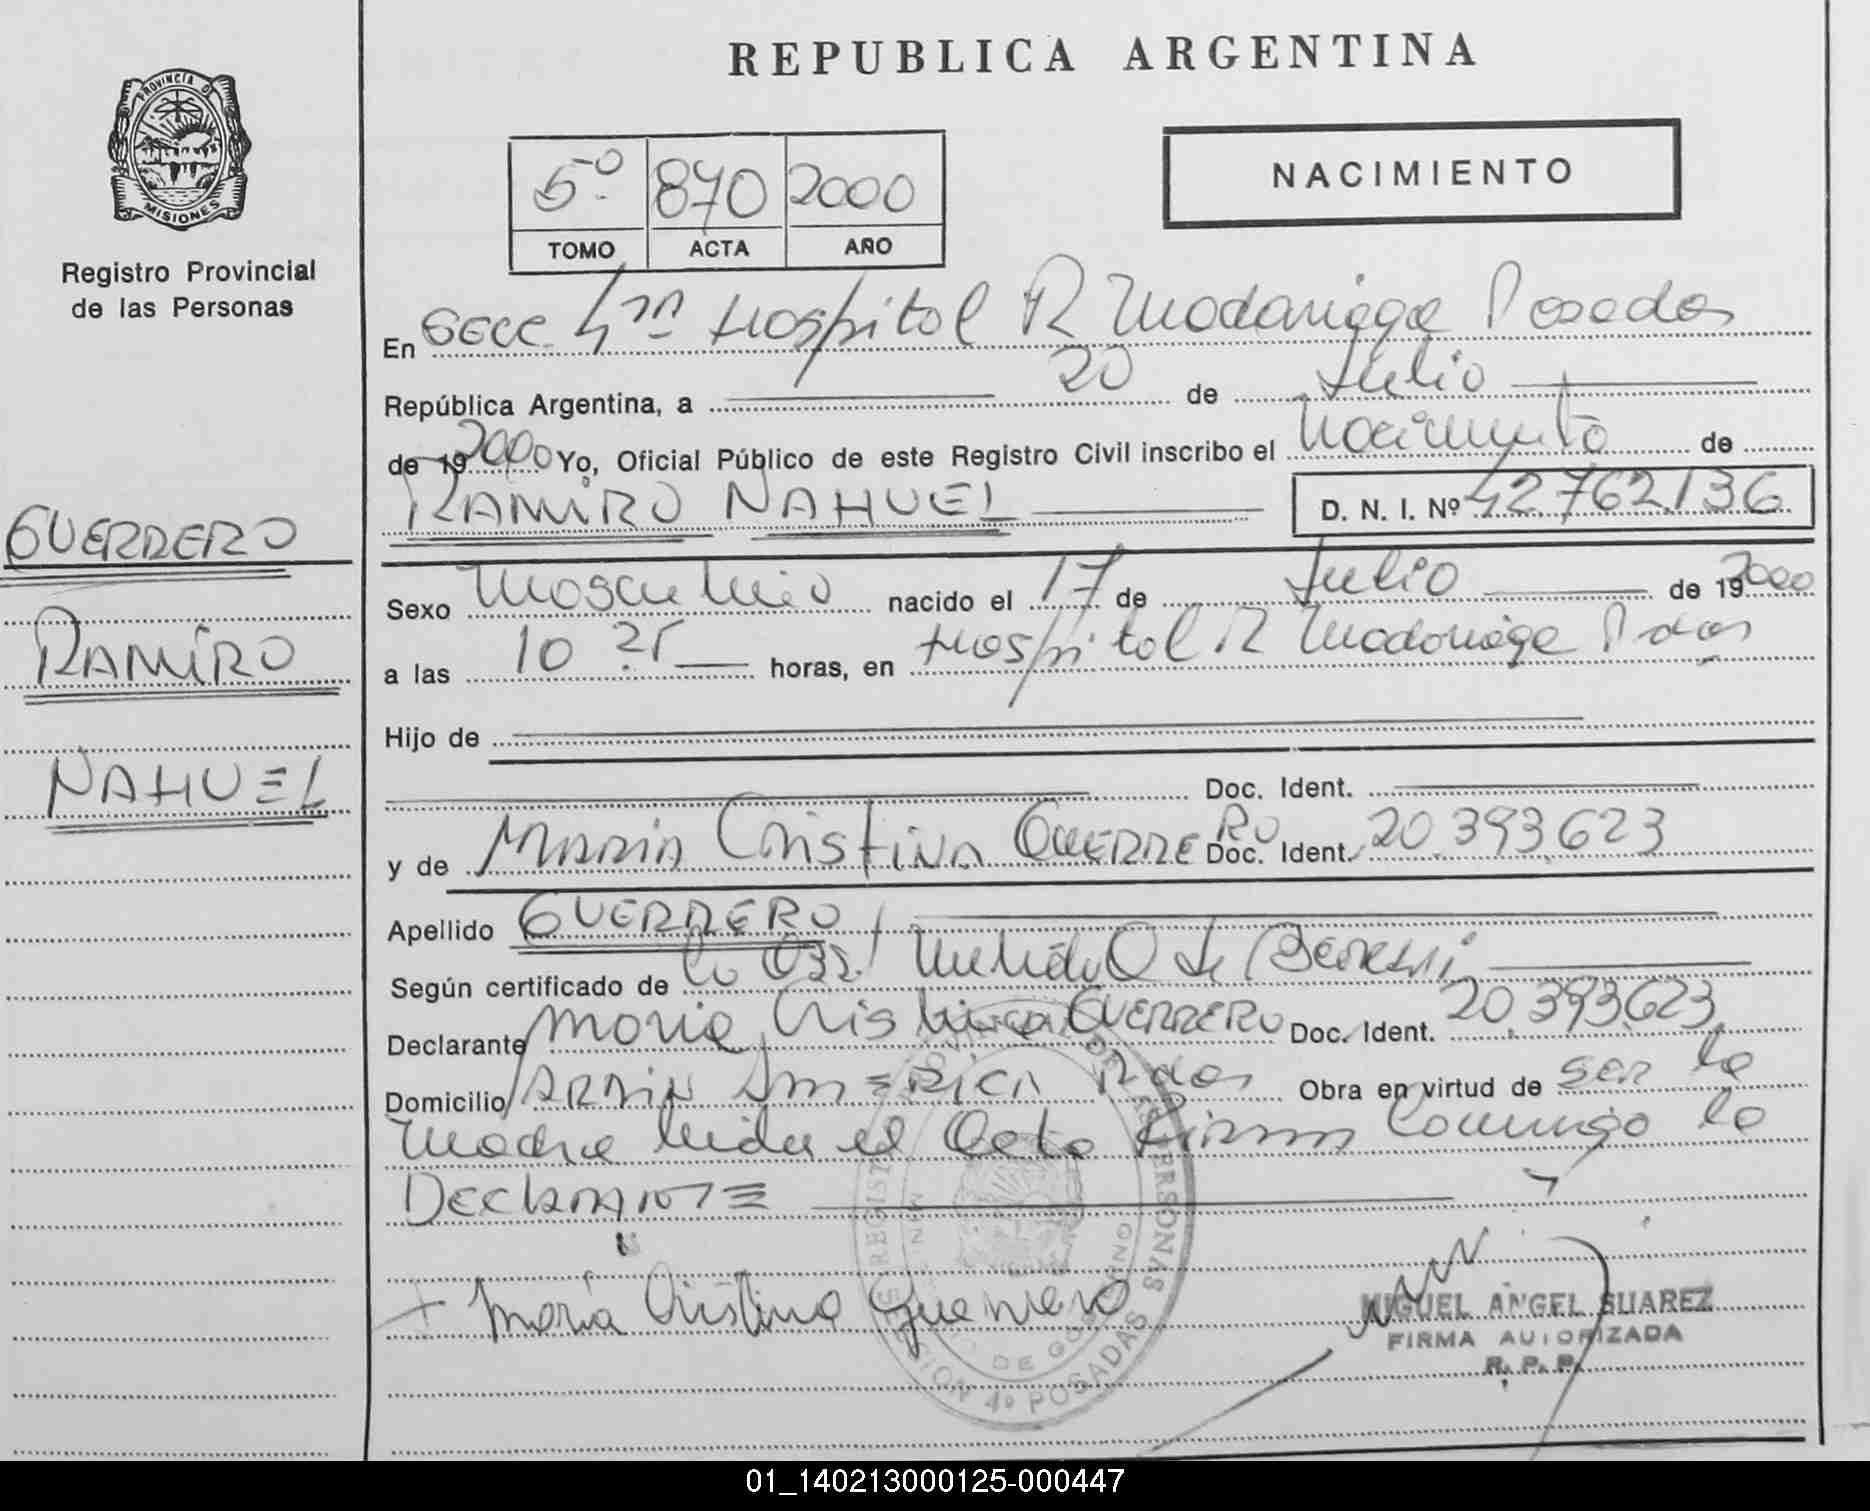 REPUBLICA ARGENTINA
PROVINCIA D
MISIONES
Registro Provincial
de las Personas
5º 870 2000
TOMO ACTA AÑO
NACIMIENTO
En Secc 4ta Hospital R Madariaga Posadas
República Argentina, a 20 de Julio
de 19 2000 Yo, Oficial Público de este Registro Civil inscribo el Nacimiento de
RAMIRO NAHUEL D. N. I. Nº 42762136
GUERRERO
RAMÍRO
NAHUEL
Sexo Masculino nacido el 17 de Julio de 19 2000
a las 10 25 horas, en Hospital R Madariaga Pdas
Hijo de
Doc. Ident.
y de MARIA CRISTINA GUERRERO Doc. Ident. 20.393.623
Apellido GUERRERO
Según certificado de la Obs. de
Declarante Maria Cristina GUERRERO Doc. Ident. 20.393.623
Domicilio AMERICA Pdas Obra en virtud de ser la
madre leida el Acta Firma Conmigo la
DECLARANTE
+ María Cristina Guerrero
MIGUEL ANGEL SUAREZ
FIRMA AUTORIZADA
R. P. P.
SECCION 4º POSADAS
01_140213000125-000447